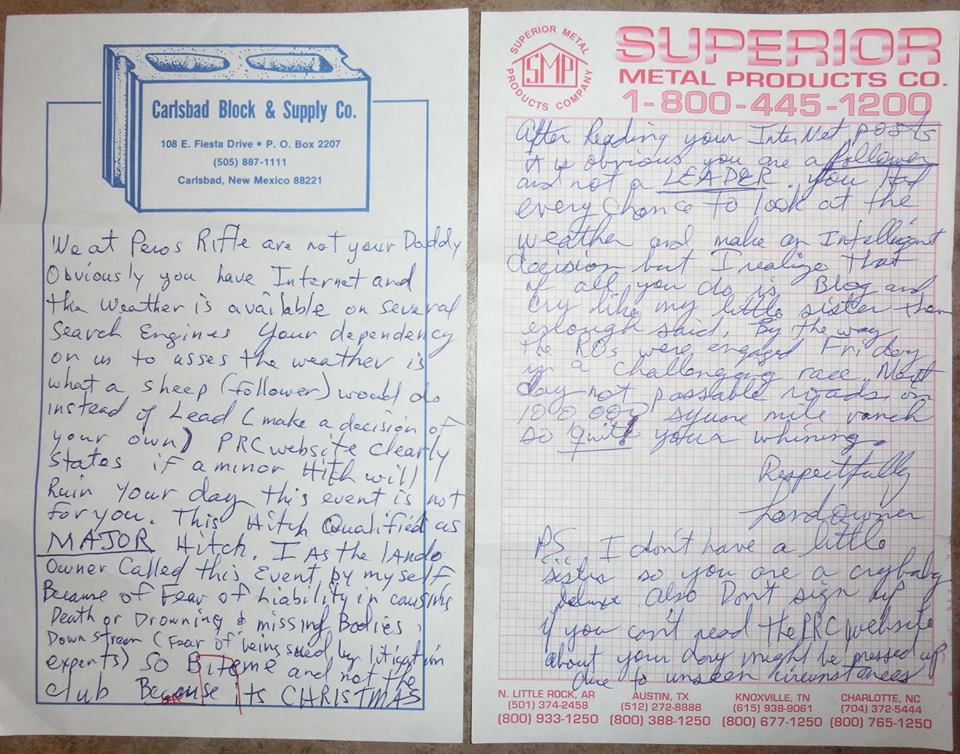 Carlsbad Block & Supply Co.
108 E. Fiesta Drive • P. O. Box 2207
(505) 887-1111
Carlsbad, New Mexico 88221
We at Pecos Rifle are not your Daddy
Obviously you have Internet and
the weather is available on several
Search Engines Your dependency
on us to asses the weather is
what a sheep (follower) would do
instead of Lead (make a decision of
your own) PRC website clearly
States if a minor Hitch will
Ruin your day this event is not
for you. This Hitch Qualified as
MAJOR Hitch. I As the lando
Owner Called this Event, by myself
Because of Fear of Liability in causing
Death or Drowning & missing Bodies
Down stream (Fear of being sued by litigation
experts) So Bite me and not the
club Because its CHRISTMAS
SUPERIOR METAL PRODUCTS COMPANY
SMP
SUPERIOR
METAL PRODUCTS CO.
1-800-445-1200
After Reading your InterNet posts
it is obvious you are a follower
and not a LEADER. you had
every chance to look at the
weather and make an Intelligent
decision but I realize that
if all you do is Blog and
cry like my little sister then
enough said. By the way
the ROs were engaged Friday
in a challenging race Next
day not passable roads on
square mile ranch
so quit your whining.
Respectfully
Landowner
PS I don't have a little
Sister so you are a crybaby
also Don't sign up
if you can't read the PRC website
about your day might be pressed up
due to unseen circumstances
N. LITTLE ROCK, AR
(501) 374-2458
(800) 933-1250
AUSTIN, TX
(512) 272-8888
(800) 388-1250
KNOXVILLE, TN
(615) 938-9061
(800) 677-1250
CHARLOTTE, NC
(704) 372-5444
(800) 765-1250